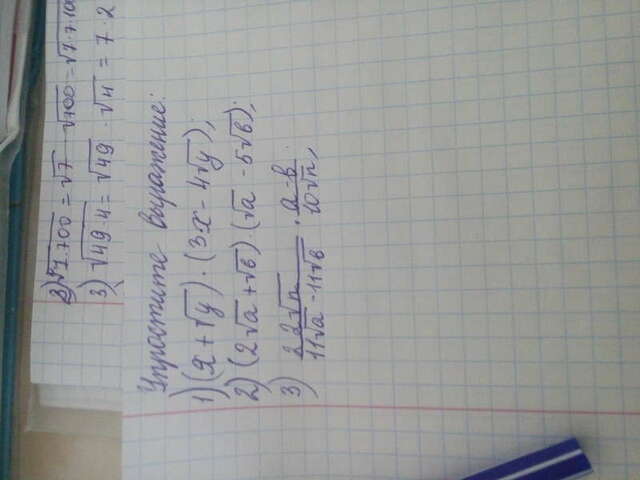 2) √7·700 = √7 √700 = √7·7·100
3) √49·4 = √49 · √4 = 7·2
Упростите выражение:
1) (x + √y) · (3x - 4√y);
2) (2√a + √b) · (√a - 5√b);
3) 22√n / 11√a - 11√b · a-b / 10√n,